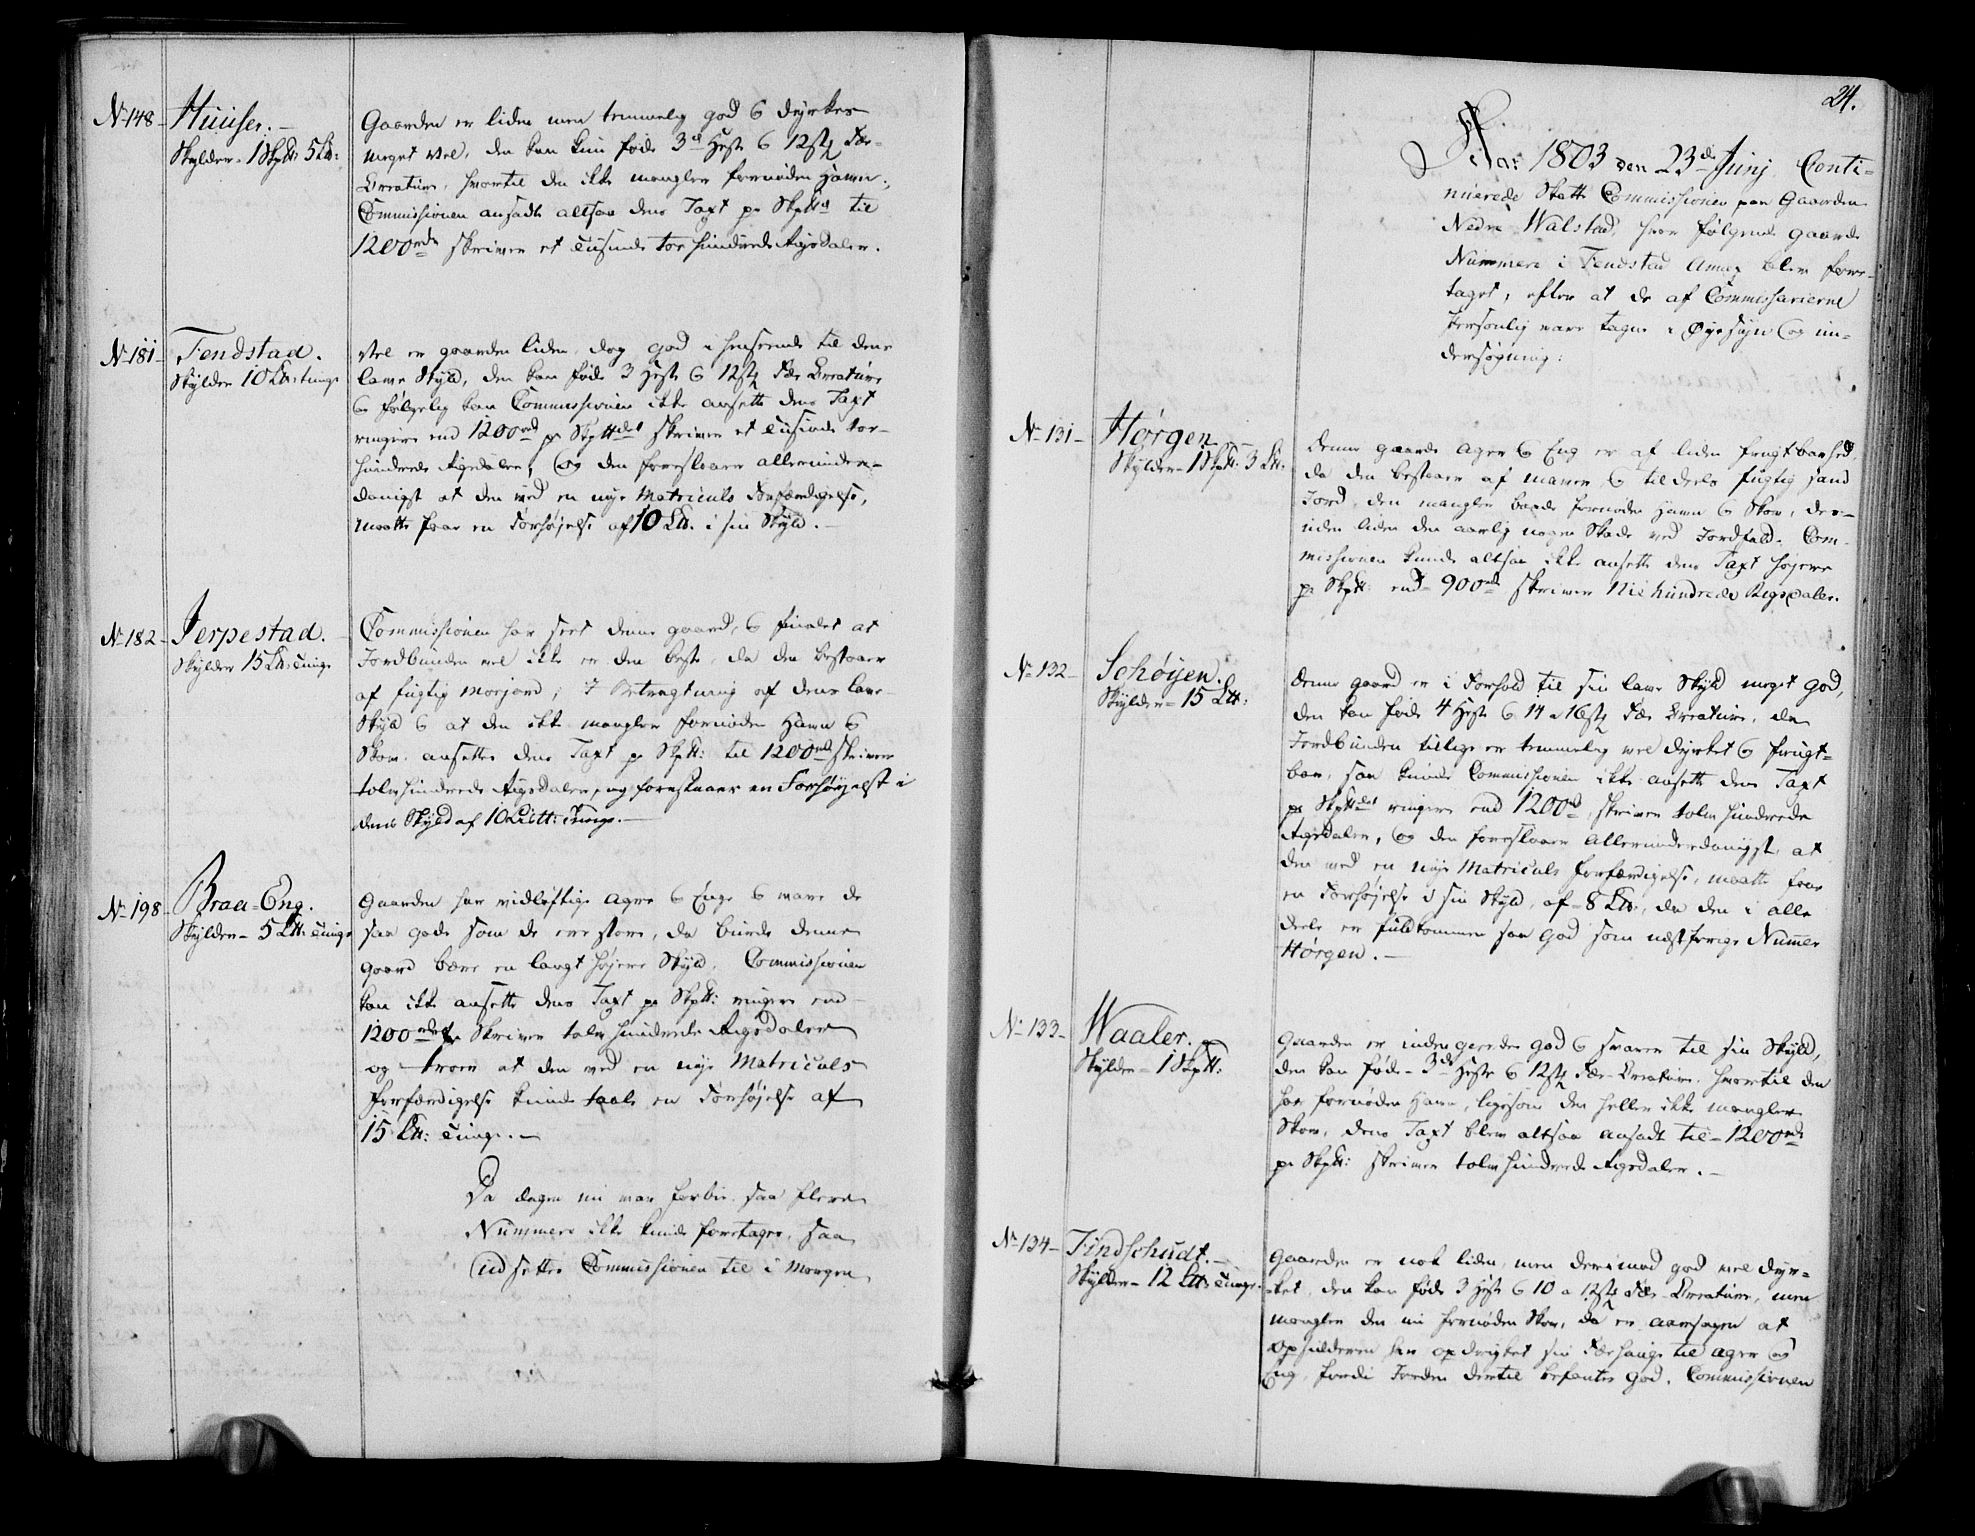 No 148 – Huuser. –
Skylder – 1 Skp℔: 5 L℔:
Gaarden er liden men temmelig god & dyrkes
meget vel, den kan kun føde 3de Heste & 12 stk Fæ-
Creature, hvortil den ikke mangler fornøden Havn;
Commissionen ansadte altsaa dens Taxt pr Skp℔ til
1200 rdr skriver et tusinde toe hundrede Rigsdaler.
No 181 – Fendstad.
Skylder 10 L℔: tunge
Vel er gaarden liden, dog god i henseende til dens
lave Skyld, den kan føde 3 Heste & 12 stk Fæe Creature
& følgelig kan Commissionen ikke ansette dens Taxt
ringere end 1200 rdr pr Skp℔det skriver et tusinde toe-
hundrede Rigsdaler, og den foreslaaer allerunder-
danigst at den ved en nye Matriculs Forfærdigelse,
maatte faae en Forhøjelse af 10 L℔. i sin Skyld. –
No 182 – Jerpestad. –
Skylder 15 L℔: tunge
Commissionen har seet denne gaard, & fundet at
Jordbunden vel ikke er den beste, da den bestaaer
af fugtig Morjord; I Betragtning af dens lave
Skyld & at den ikke mangler fornøden Havn &
Skov ansettes dens Taxt pr Skp℔: til 1200 rdr skriver
tolv hundrede Rigsdaler, og foreslaaer en Forhøyelse i
dens Skyld af 10 L℔: tunge. –
No 198 – Braa-Eng.
Skylder – 5 L℔: tunge
Gaarden har vidløftige Agre & Enge & vare de
saa gode som de ere store, da burde denne
gaard bære en langt højere Skyld. Commissionen
kan ikke ansette dens Taxt pr Skp℔: ringere end
1200 rdr Skriver tolv hundrede Rigsdaler
og troer at den ved en nye Matriculs
Forfærdigelse kunde taale en Forhøjelse af
15 L℔: tunge. –
Da dagen nu var forbie saa flere
Nummere ikke kunde foretages, saa
udsettes Commissionen til i Morgen
24.
Aar 1803 den 23de Junj Conti-
nuerede Skatte Commissionen paa Gaarden
Nedre Walstad, hvor følgende gaarde
Nummere i Fendstad Annex blev fore-
taget, efter at de af Commissarierne
Personlig vare tagne i Øyesyn og un-
dersøgning:
No 131 – Hørgen –
Skylder – 1 Skp℔: 3 L℔:
Denne gaards Ager & Eng er af liden frugtbarhed,
da den bestaaer af maver & tildeels fugtig sand
Jord, den mangler baade fornøden Havn & Skov, des-
uden liden den aarlig nogen Skade ved Jordfald. Com-
missionen kunde altsaa ikke ansette dens Taxt højere
pr Skp℔: end 900 rdr skriver Nie hundrede Rigsdaler.
No 132 – Schøyen.
Skylder – 15 L℔:
Denne gaard er i Forhold til sin lave Skyld meget god,
den kan føde 4 Heste & 14 a 16 stk Fæe Creature, da
Jordbunden tillige er temmelig vel dyrket & frugt-
bar, saa kunde Commissionen ikke ansette dens Taxt
pr Skp℔det ringere end 1200 rdr, skriver tolv hundrede
Rigsdaler, og den foreslaaer allerunderdanigst at
den ved en nye Matriculs forfærdigelse, maatte faae
en Forhøjelse i sin Skyld, af – 8 L℔:, da den i alle
deele er fuldkommen saa god som næst forrige Numer
Hørgen. –
No 133 – Waaler.
Skylder – 1 Skp℔:
Gaarden er inden gierdes god & svarer til sin Skyld,
den kan føde – 3de Heste & 12 stk Fæe-Creature, hvortil den
har fornøden Havn, ligesom den heller ikke mangler
Skov, dens Taxt blev altsaa ansadt til – 1200 rdr
pr Skp℔: skriver tolv hundrede Rigsdaler. –
No 134 – Findschudt. –
Skylder – 12 L℔: tunge.
Gaarden er nok liden, men derimod god vel dyr-
ket, den kan føde 3 Heste & 10 a 12 stk Fæe-Creature, men
mangler den nu fornøden Skov, da er aarsagen at
Opsidderen har opdrigtet sin Fæehauge til ager og
Eng, fordi Jorden dertil befantes god. Commissionen